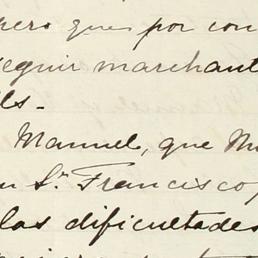 pero que por con
seguir marchant
ls.
Manuel, que
Sn. Francisco,
las dificultades